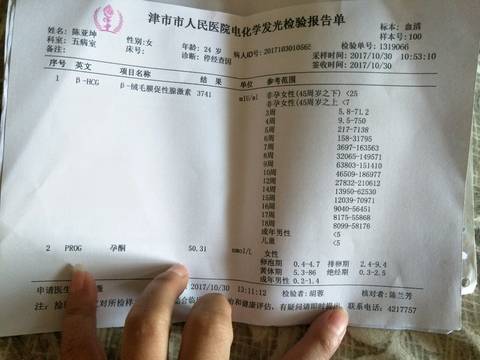 津市市人民医院电化学发光检验报告单
标本：血清
样本号：100
姓名：陈亚坤 性别：女 年龄：24 岁 病人ID号：2017103010565 检验单号：1319066
科室：五病室 床号： 诊断：停经查因 采样时间：2017/10/30 10:53:10
签收时间：2017/10/30
序号 英文 项目名称 结果 单位 参考范围
1 β-HCG β-绒毛膜促性腺激素 3741 mIU/ml 非孕女性(45周岁之下) <25
非孕女性(45周岁之上 <7
3周 5.8-71.2
4周 9.5-750
5周 217-7138
6周 158-31795
7周 3697-163563
8周 32065-149571
9周 63803-151410
10周 46509-186977
12周 27832-210612
14周 13950-62530
15周 12039-70971
16周 9040-56451
17周 8175-55868
18周 8099-58176
成年男性 <5
儿童 <5
2 PROG 孕酮 50.31 nmol/L 女性
卵泡期 0.4-4.7 排卵期 2.4-9.4
黄体期 5.3-86 绝经期 0.3-2.5
成年男性 0.2-1.4
申请医生 2017/10/30 13:11:12 检验者：胡蓉 核对者：陈兰芳
注：对所检样 和健康评估，有疑问请即时提出，联系电话：4217757